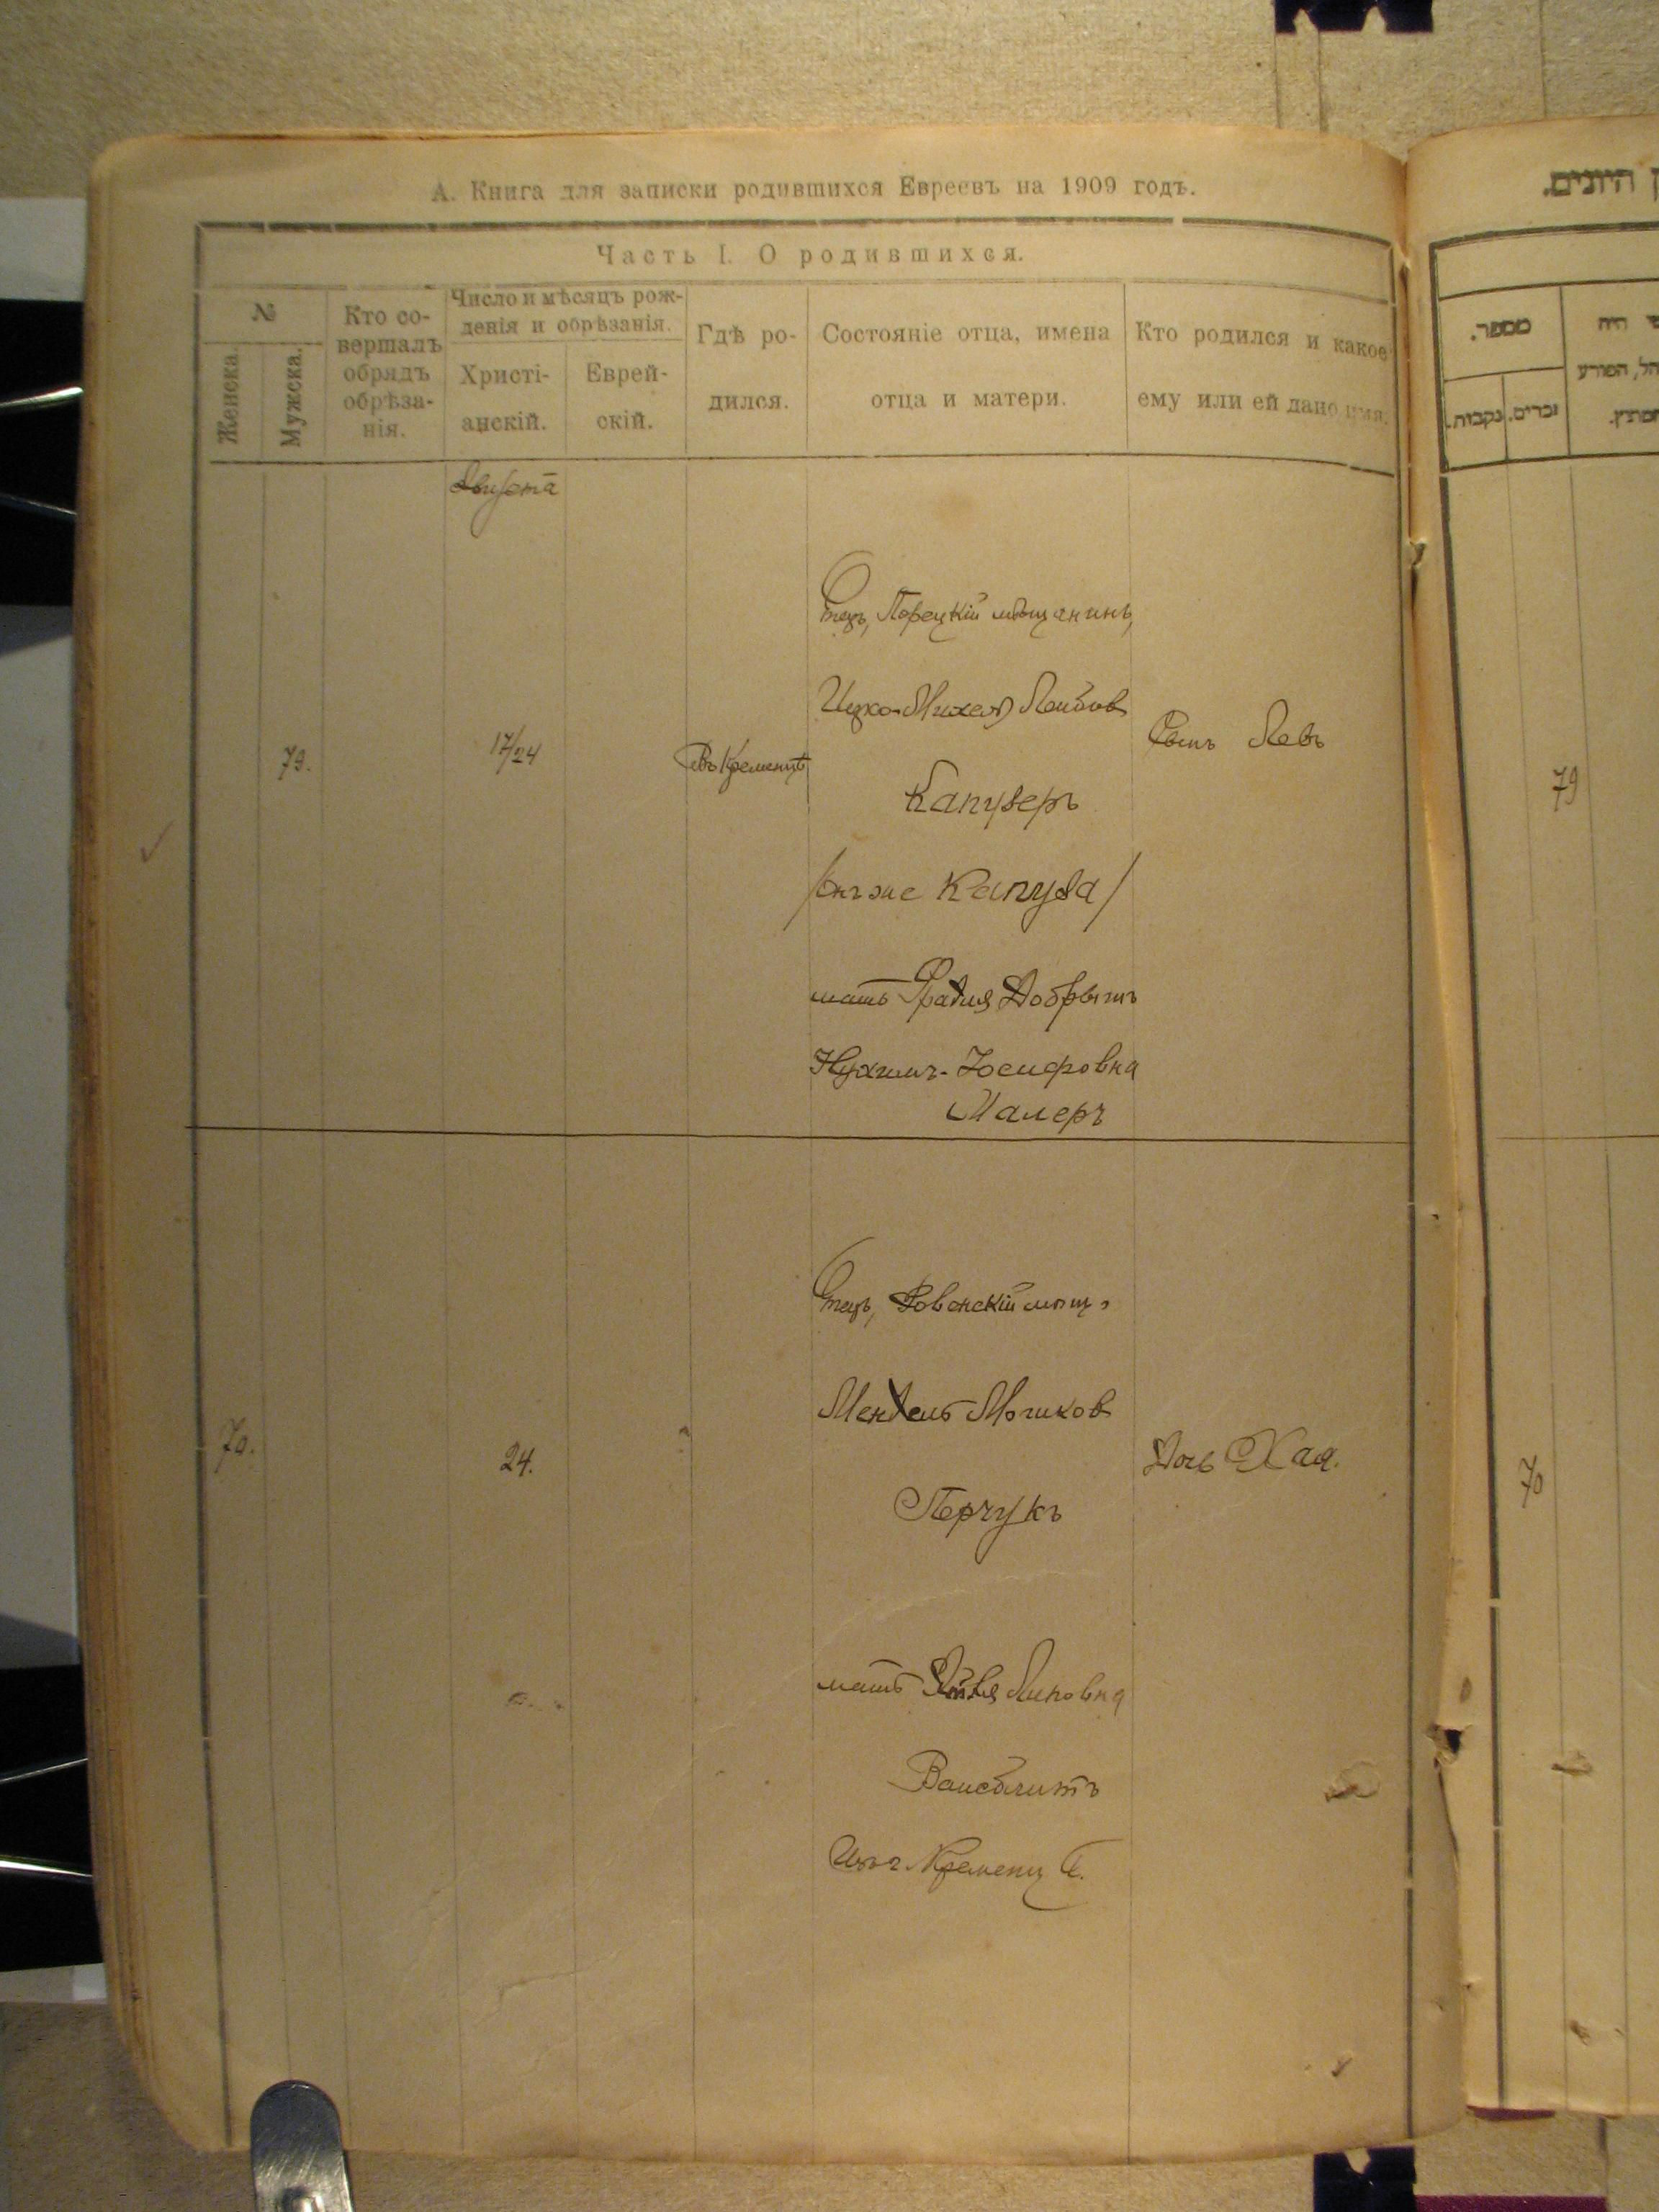 А. Книга для записки родившихся Евреевъ на 1909 годъ.
Часть I. О родившихся.
№
Женска.
Мужска.
Кто со-
вершалъ
обрядъ
обрѣза-
нія.
Число и мѣсяцъ рож-
денія и обрѣзанія.
Христі-
анскій.
Еврей-
скій.
Гдѣ ро-
дился.
Состояніе отца, имена
отца и матери.
Кто родился и какое
ему или ей дано имя.
Августа
79.
17/24
Въ Кременцѣ
Отецъ, Порецкій мѣщанинъ,
Ицко-Михель Лейбов
Капузеръ
/онъ же Капуза/
мать Фрадля Добрышъ
Нухимъ-Іосифовна
Малеръ
Сынъ Левъ
70.
24.
Отецъ, Ровенскій мѣщ.
Мендель Мошков
Перчукъ
мать
Вайсблитъ
Кременц
Дочь Хая.
היונים.
מספר.
נקבות.
זכרים.
79
70